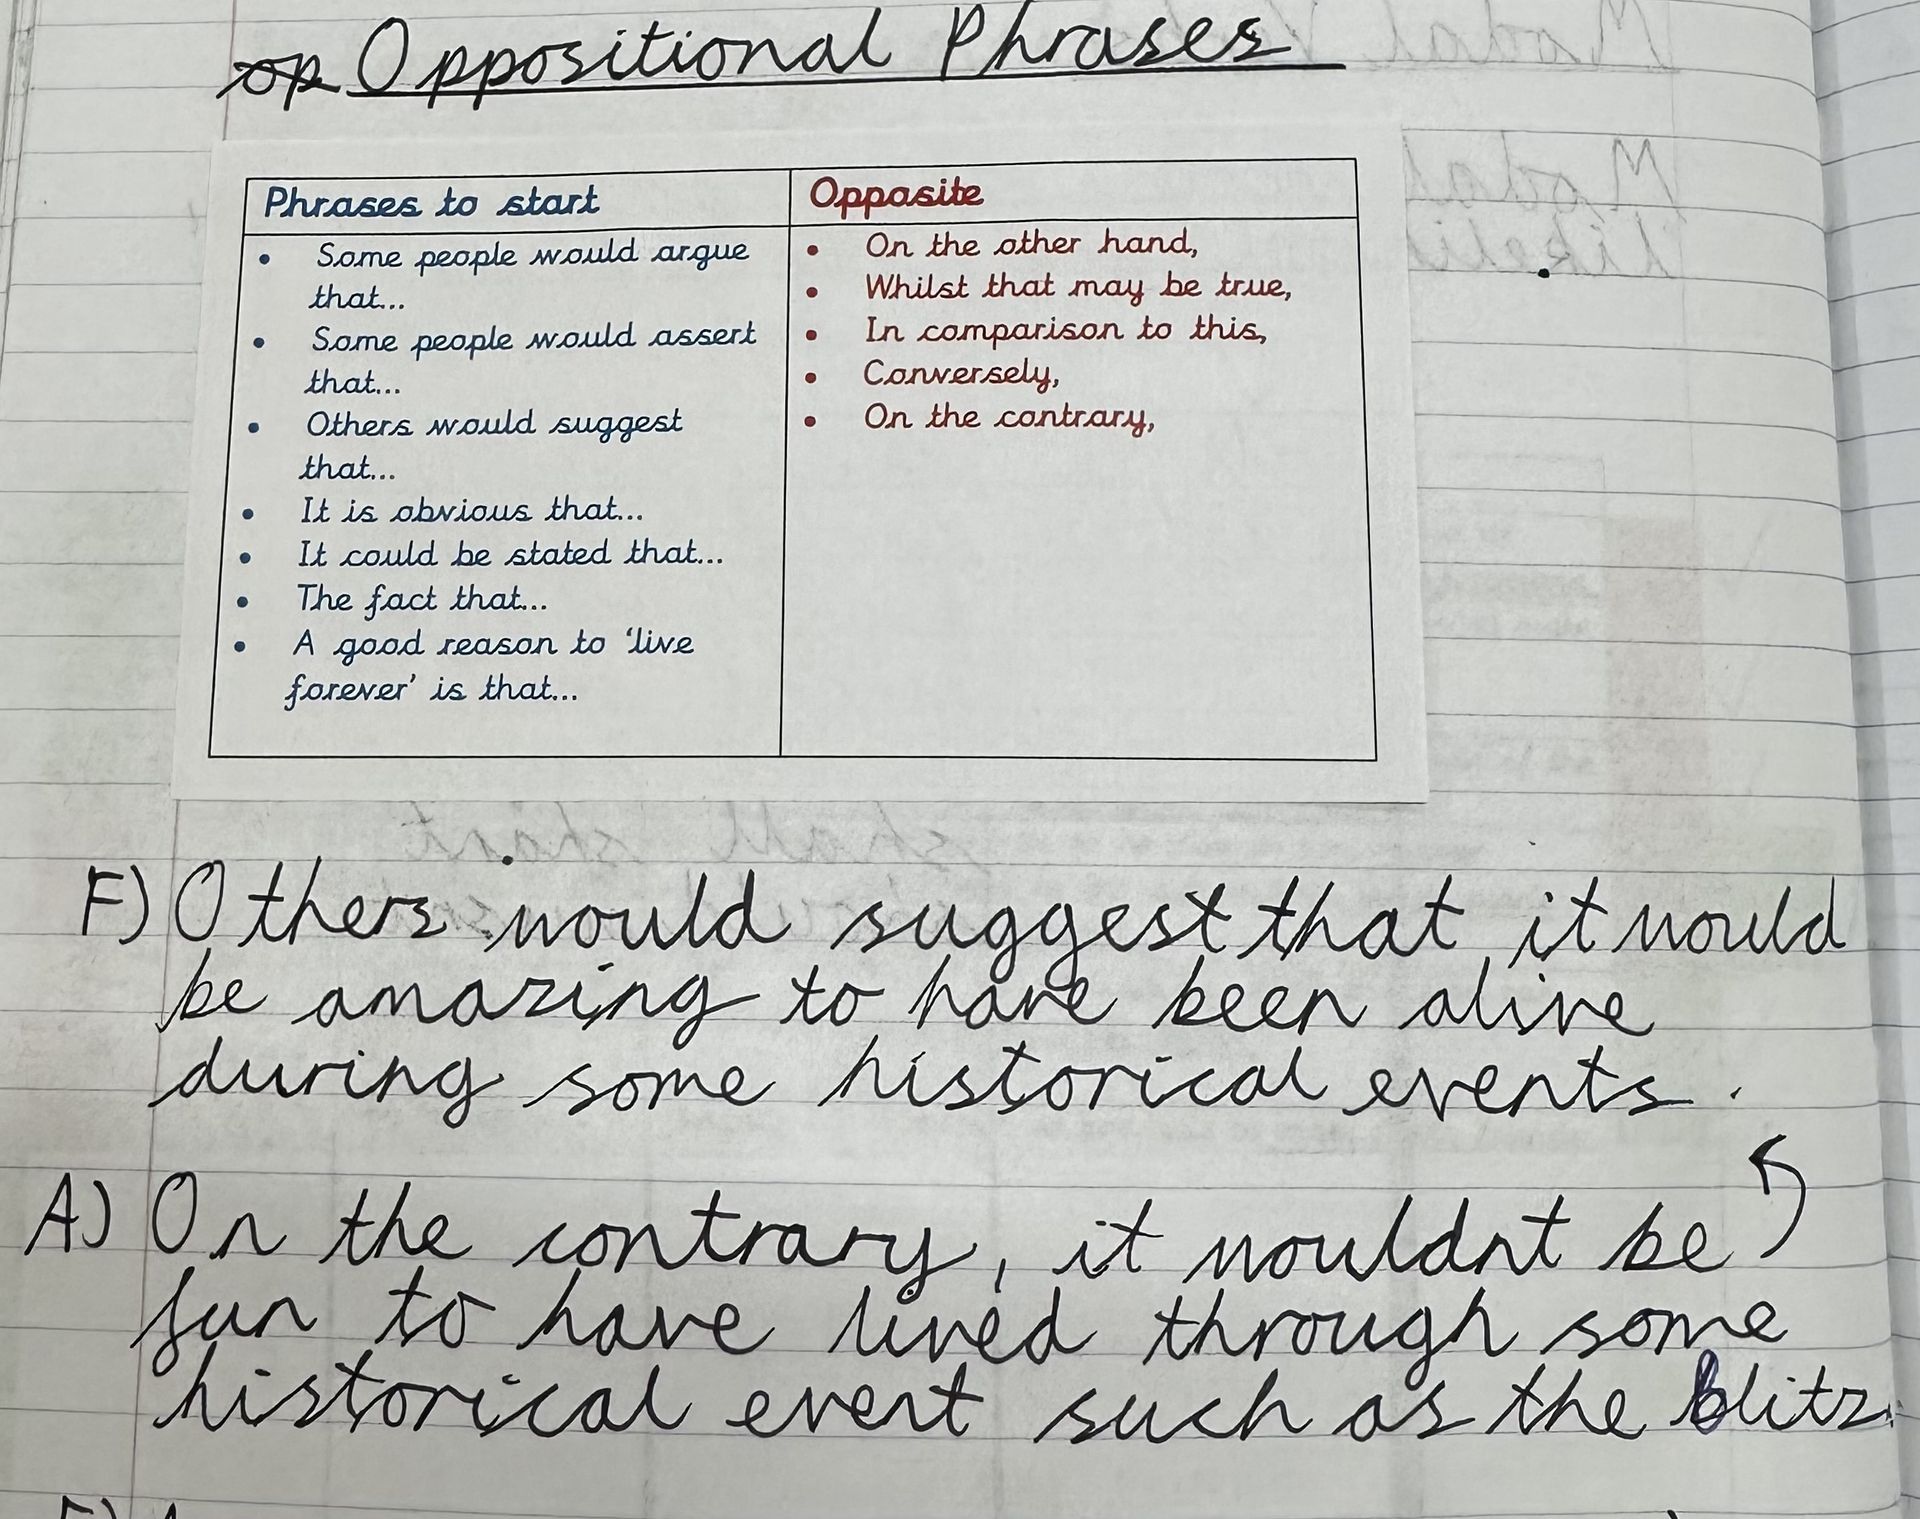 op Oppositional Phrases
Phrases to start
• Some people would argue
that...
• Some people would assert
that...
• Others would suggest
that...
• It is obvious that...
• It could be stated that...
• The fact that...
• A good reason to ‘live
forever’ is that...
Opposite
• On the other hand,
• Whilst that may be true,
• In comparison to this,
• Conversely,
• On the contrary,
F) Others would suggest that it would
be amazing to have been alive
during some historical events.
A) On the contrary, it wouldnt be
fun to have lived through some
historical event such as the Blitz.